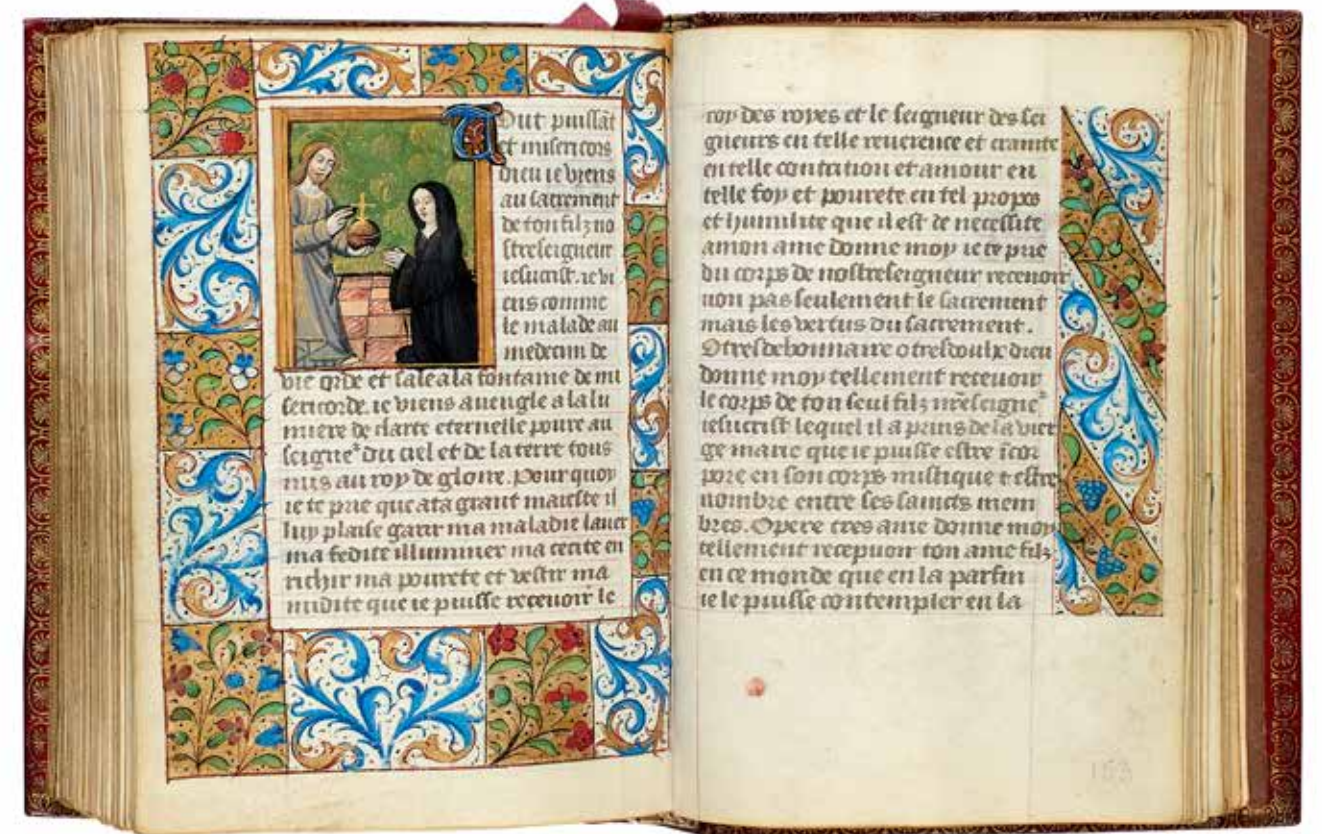 Tout puissāt
et misericors
dieu ie viens
au sacrement
de ton filz no
streseigneur
iesucrist. ie vi
ens comme
le malade au
medecin de
vie orde et sale a la fontaine de mi
sericorde. ie viens aueugle a la lu
miere de clarte eternelle poure au
seigneᵉ du ciel et de la terre tous
nus au roy de gloire. Pour quoy
ie te prie que ata grant maieste il
luy plaise garir ma maladie lauer
ma fedite illuminer ma cecite en
richir ma pourete et vestir ma
nudite que ie puisse receuoir le
roy des royes et le seigneur des sei
gneurs en telle reuerence et crainte
en telle contrition et amour en
telle foy et pourete en tel propos
et humilite que il est de necessite
amon ame donne moy ie te prie
du corps de nostreseigneur receuoir
non pas seulement le sacrement
mais les vertus du sacrement.
O tresdebonnaire o tresdoulx dieu
donne moy tellement receuoir
le corps de ton seul filz nr̄eseigneᵉ
iesucrist lequel il a prins de la vier
ge marie que ie puisse estre īcor
pore en son corps mistique et estre
nombre entre ses saincts mem
bres. O pere tres ame donne moy
tellement recepuoir ton ame filz
en ce monde que en la parfin
ie le puisse contempler en la
153